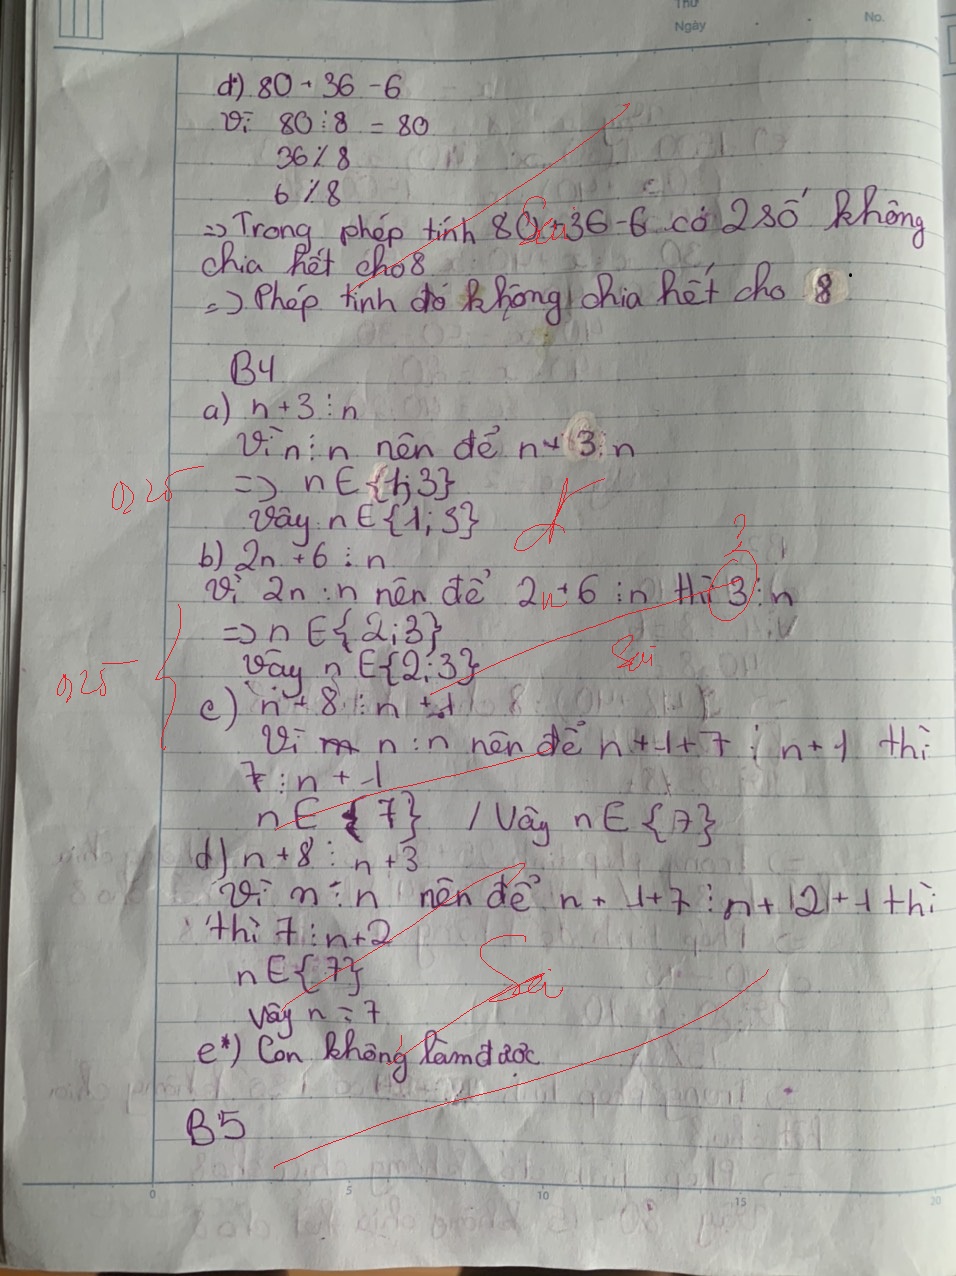 Thứ
Ngày
No.
d) 80 + 36 - 6
Vì 80 ⋮ 8 = 80
36 ⋮̸ 8
6 ⋮̸ 8
=> Trong phép tính 80 + 36 - 6 có 2 số không
Sai
chia hết cho 8
=> Phép tính đó không chia hết cho 8
B4
a) n + 3 ⋮ n
Vì n ⋮ n nên để n + 3 ⋮ n
0,25
=> n ∈ {1; 3}
Vậy n ∈ {1; 3}
b) 2n + 6 ⋮ n
?
Vì 2n ⋮ n nên để 2n + 6 ⋮ n thì 3 ⋮ n
=> n ∈ {2; 3}
Sai
Vậy n ∈ {2; 3}
0,25
c) n + 8 ⋮ n + 1
Vì n ⋮ n nên để n + 1 + 7 ⋮ n + 1 thì
7 ⋮ n + 1
n ∈ {7} / Vậy n ∈ {7}
d) n + 8 ⋮ n + 3
Vì n ⋮ n nên để n + 1 + 7 ⋮ n + 2 + 1 thì
thì 7 ⋮ n + 2
n ∈ {7}
Sai
Vậy n = 7
e*) Con không làm được
B5
0 5 10 15 20